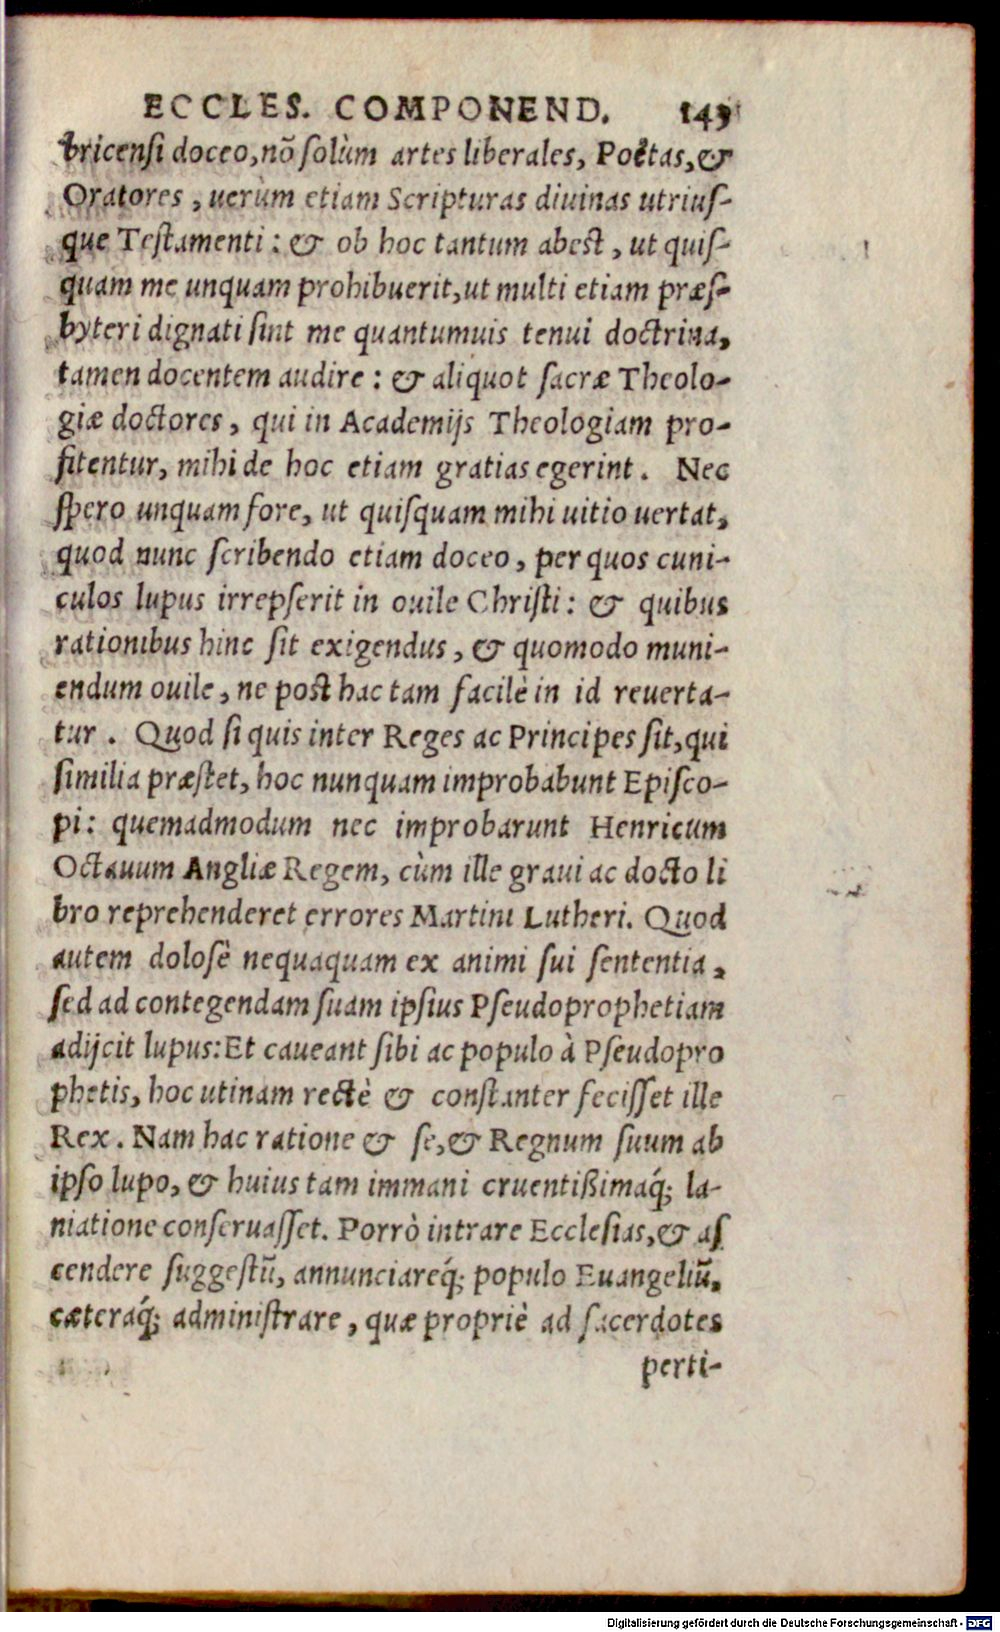 ECCLES. COMPONEND. 143
bricensi doceo, nõ solùm artes liberales, Poëtas, &
Oratores, uerùm etiam Scripturas diuinas utrius-
que Testamenti: & ob hoc tantum abest, ut quis-
quam me unquam prohibuerit, ut multi etiam præs-
byteri dignati sint me quantumuis tenui doctrina,
tamen docentem audire: & aliquot sacræ Theolo-
giæ doctores, qui in Academijs Theologiam pro-
fitentur, mihi de hoc etiam gratias egerint. Nec
spero unquam fore, ut quisquam mihi uitio uertat,
quod nunc scribendo etiam doceo, per quos cuni-
culos lupus irrepserit in ouile Christi: & quibus
rationibus hinc sit exigendus, & quomodo muni-
endum ouile, ne post hac tam facilè in id reuerta-
tur. Quod si quis inter Reges ac Principes sit, qui
similia præstet, hoc nunquam improbabunt Episco-
pi: quemadmodum nec improbarunt Henricum
Octauum Angliæ Regem, cùm ille graui ac docto li
bro reprehenderet errores Martini Lutheri. Quod
autem dolosè nequaquam ex animi sui sententia,
sed ad contegendam suam ipsius Pseudoprophetiam
adijcit lupus: Et caueant sibi ac populo à Pseudopro
phetis, hoc utinam rectè & constanter fecisset ille
Rex. Nam hac ratione & se, & Regnum suum ab
ipso lupo, & huius tam immani cruentißimaq́; la-
niatione conseruasset. Porrò intrare Ecclesias, & as
cendere suggestũ, annunciareq́; populo Euangeliũ,
cæteraq́; administrare, quæ propriè ad sacerdotes
perti-
Digitalisierung gefördert durch die Deutsche Forschungsgemeinschaft - DFG